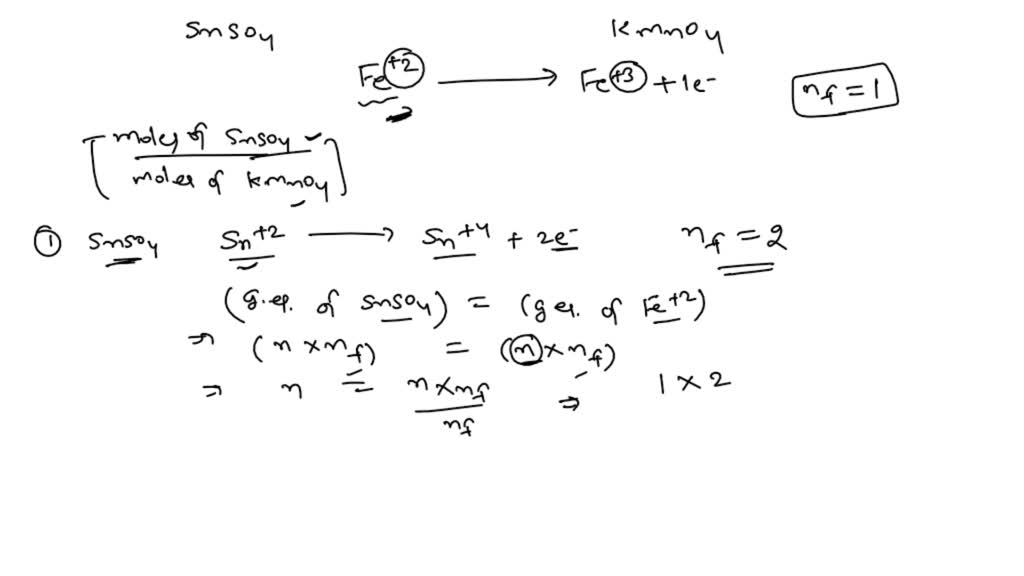 SnSO4 KMnO4
Fe+2 ⟶ Fe+3 + 1e- nf = 1
[ moles of SnSO4
moles of KMnO4 ]
① SnSO4 Sn+2 ⟶ Sn+4 + 2e- nf = 2
(g.eq. of SnSO4) = (g eq. of Fe+2)
⇒ (n × nf) = (n × nf)
⇒ n = n × nf ⇒ 1 × 2
nf